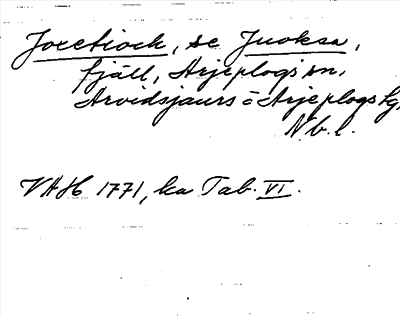 Joxetiock, se Juoksa,
fjäll, Arjeplogs sn,
Arvidsjaurs o Arjeplogs lg,
Nb. l.
VAH 1771, ka Tab. VI.